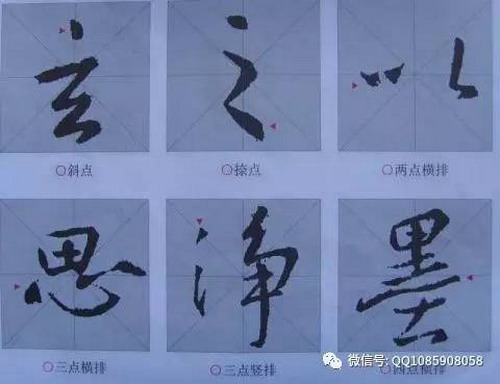 玄 之 以
斜点 捺点 两点横排
思 净 墨
三点横排 三点竖排 四点横排
微信号: QQ1085908058